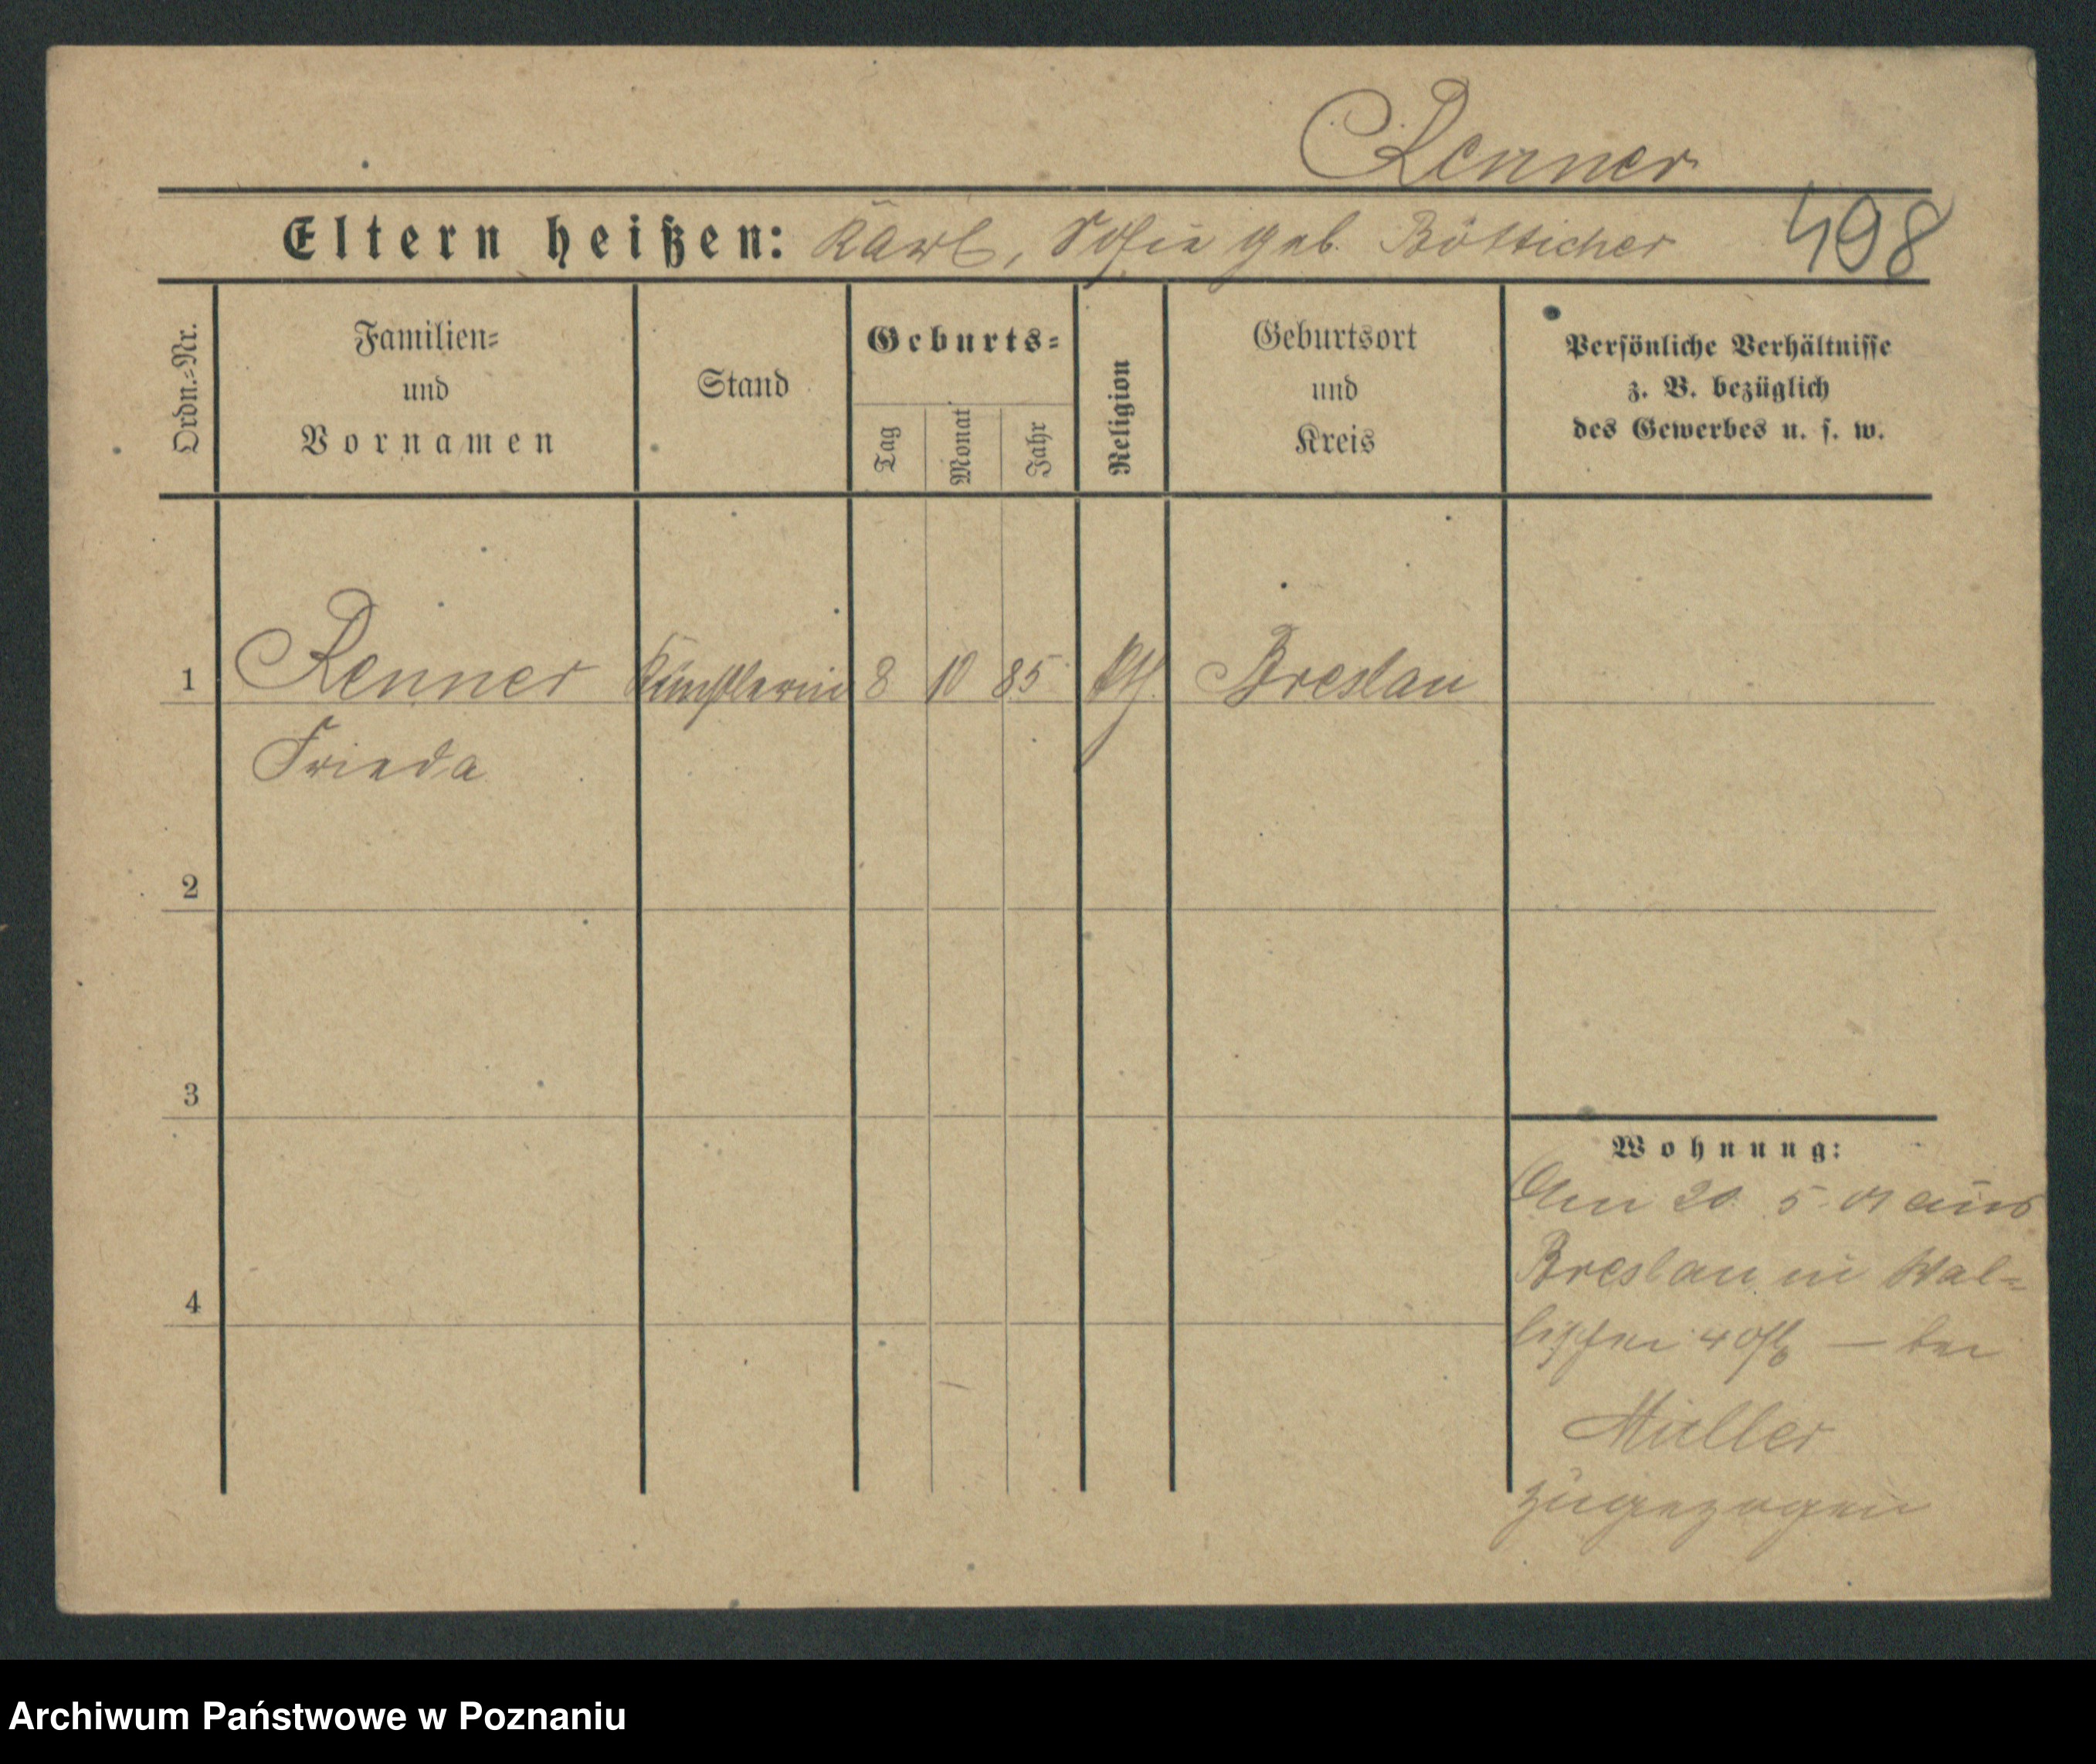 Renner
Eltern heißen: Karl, Sofie geb. Bötticher 498
Ordn.-Nr.
Familien-
und
Vornamen
Stand
Geburts-
Tag
Monat
Jahr
Religion
Geburtsort
und
Kreis
Persönliche Verhältnisse
z. B. bezüglich
des Gewerbes u. s. w.
1 Renner Künstlerin 8 10 85 Breslau
Frieda
2
3
4
Wohnung:
Am 20. 5. 01 aus
Breslau in Wal-
lischei 4 — bei
Müller
zugezogen
Archiwum Państwowe w Poznaniu